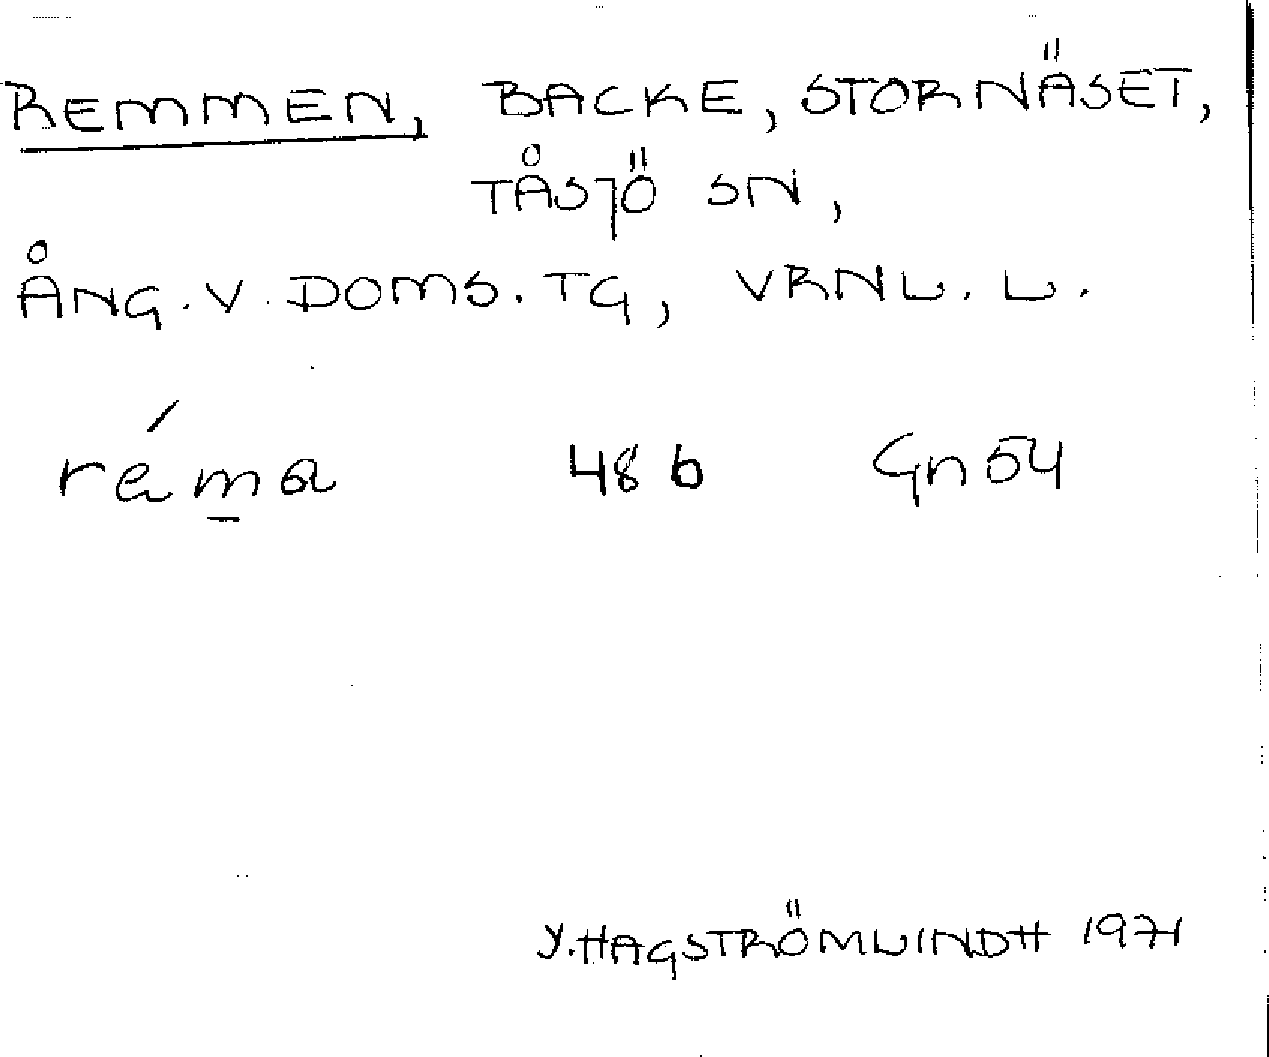 REMMEN, BACKE, STORNÄSET,
TÅSJÖ SN,
ÅNG. V. DOMS. TG, VRNL. L.
réma 48 b Gn 54
Y. HAGSTRÖM LINDH 1971